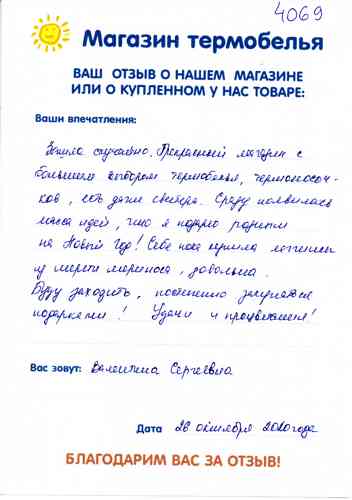 4069
Магазин термобелья
ВАШ ОТЗЫВ О НАШЕМ МАГАЗИНЕ
ИЛИ О КУПЛЕННОМ У НАС ТОВАРЕ:
Ваши впечатления:
Зашла случайно. Прекрасный магазин с
большим выбором термобелья, термоносоч-
ков, есть даже свитера. Сразу появилась
масса идей, что я подарю родным
на Новый Год! Себе пока купила леггинсы
из шерсти мериноса, довольна.
Буду заходить, постепенно закупаться
подарками! Удачи и процветания!
Вас зовут: Валентина Сергеевна
Дата 26 октября 2020 года
БЛАГОДАРИМ ВАС ЗА ОТЗЫВ!